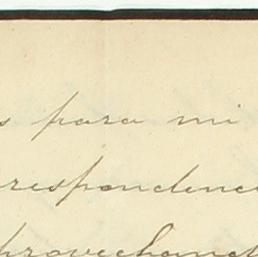 s para mi
respondenc
provechand